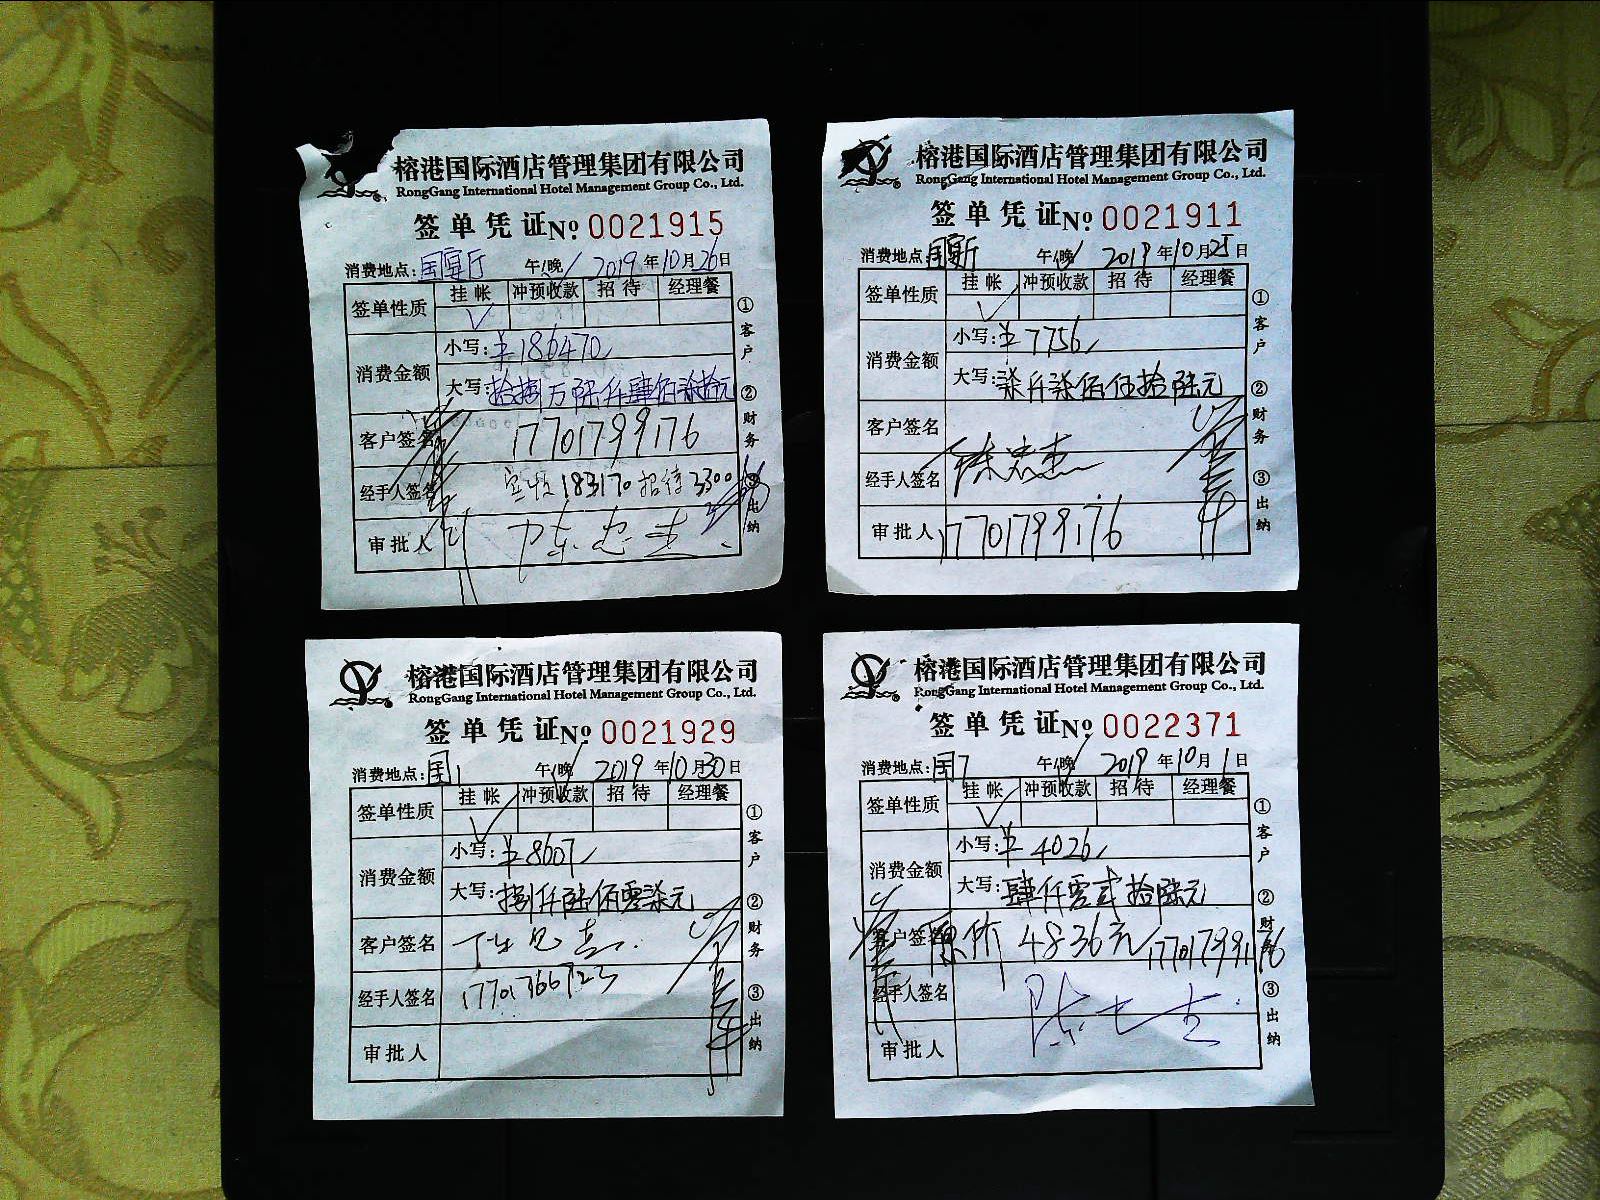 榕港国际酒店管理集团有限公司
RongGang International Hotel Management Group Co., Ltd.
签单凭证 № 0021915
消费地点:国宴厅 午/晚 2019年10月26日
签单性质 挂帐 冲预收款 招待 经理餐
✓
消费金额 小写:¥186470
大写:拾捌万陆仟肆佰柒拾元
客户签名 17701799176
经手人签名 实收183170 招待3300
审批人 陈忠杰
①客户 ②财务 ③出纳
榕港国际酒店管理集团有限公司
RongGang International Hotel Management Group Co., Ltd.
签单凭证 № 0021911
消费地点:国宴厅 午/晚 2019年10月25日
签单性质 挂帐 冲预收款 招待 经理餐
✓
消费金额 小写:¥7756
大写:柒仟柒佰伍拾陆元
客户签名
经手人签名 陈忠杰
审批人 17701799176
①客户 ②财务 ③出纳
榕港国际酒店管理集团有限公司
RongGang International Hotel Management Group Co., Ltd.
签单凭证 № 0021929
消费地点:国1 午/晚 2019年10月30日
签单性质 挂帐 冲预收款 招待 经理餐
✓
消费金额 小写:¥8607
大写:捌仟陆佰零柒元
客户签名
经手人签名 17701366723
审批人
①客户 ②财务 ③出纳
榕港国际酒店管理集团有限公司
RongGang International Hotel Management Group Co., Ltd.
签单凭证 № 0022371
消费地点:国7 午/晚 2019年10月1日
签单性质 挂帐 冲预收款 招待 经理餐
✓
消费金额 小写:¥4026
大写:肆仟零贰拾陆元
客户签名 原价4836元 17701799176
经手人签名
审批人
①客户 ②财务 ③出纳